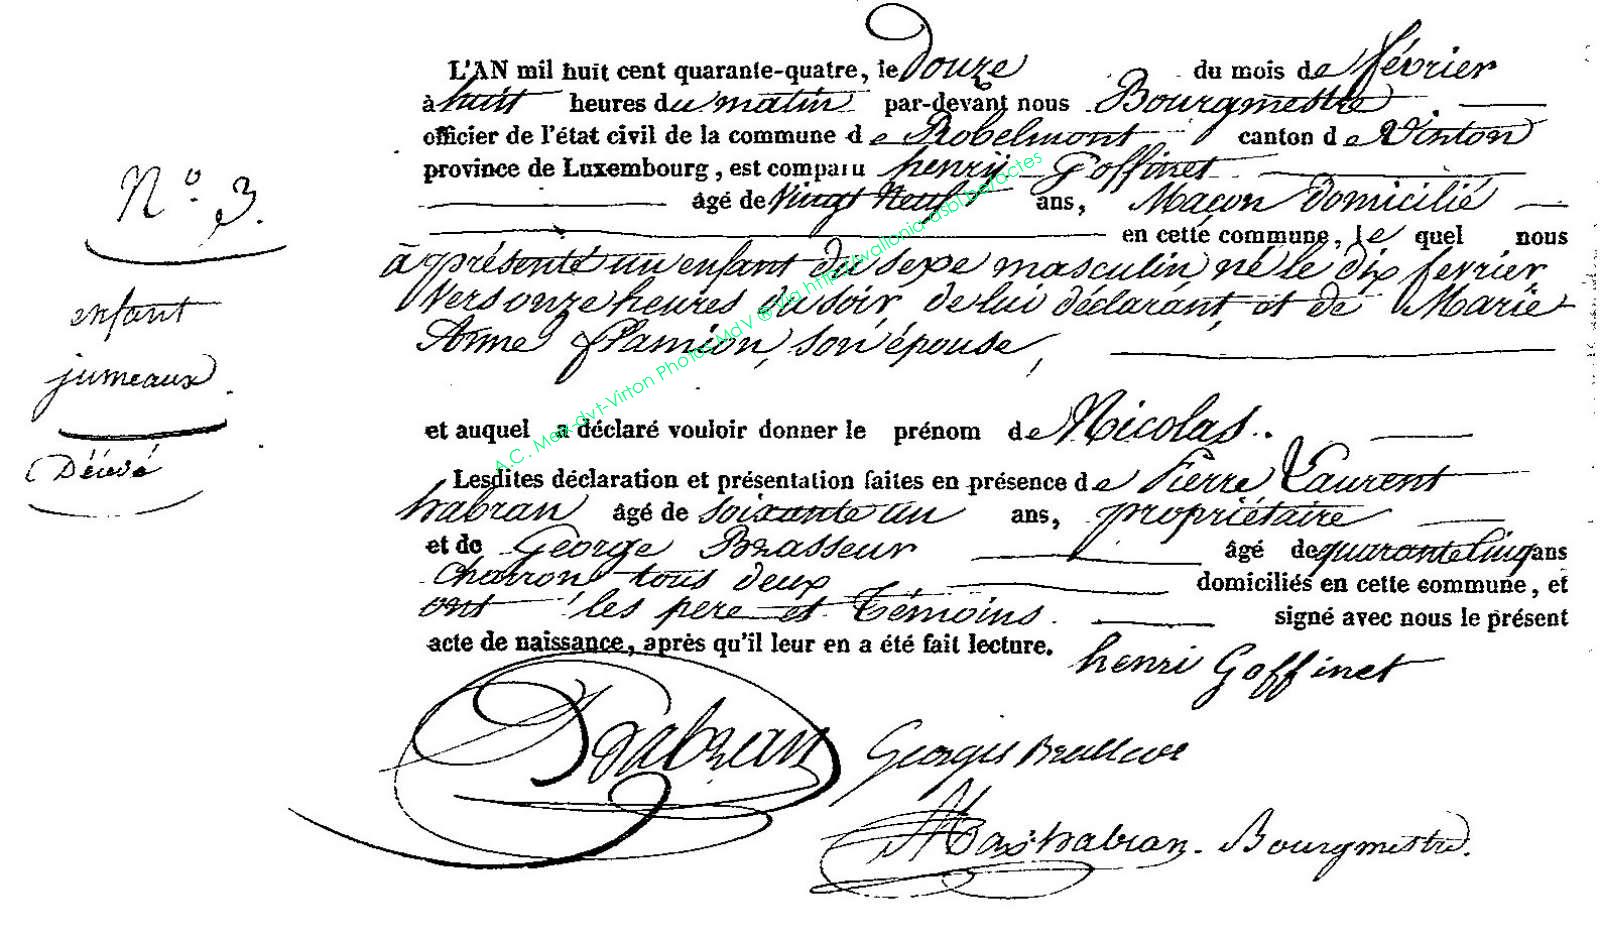 L'AN mil huit cent quarante-quatre, le Douze du mois de février
à huit heures du matin par-devant nous Bourgmestre
officier de l'état civil de la commune de Robelmont canton de Virton
province de Luxembourg, est comparu henry Goffinet
âgé de Vingt Neuf ans, Maçon domicilié
en cette commune, le quel nous
à présenté un enfant du sexe masculin né le dix fevrier
Vers onze heures du soir, de lui déclarant, et de Marie
Anne Flamion, son épouse,
et auquel a déclaré vouloir donner le prénom de Nicolas.
Lesdites déclaration et présentation faites en présence de Pierre Laurent
habran âgé de soixante un ans, propriétaire
et de George Brasseur âgé de quarante Cinq ans
charron tous deux domiciliés en cette commune, et
ont les pere et Témoins signé avec nous le présent
acte de naissance, après qu'il leur en a été fait lecture.
henri Goffinet
habran
Georges Brasseur
habran. Bourgmestre.
N° 3.
enfant
jumeaux
A.C. Meix-dvt-Virton Photos MdV @ Via http://wallonia-asbl.be/actes